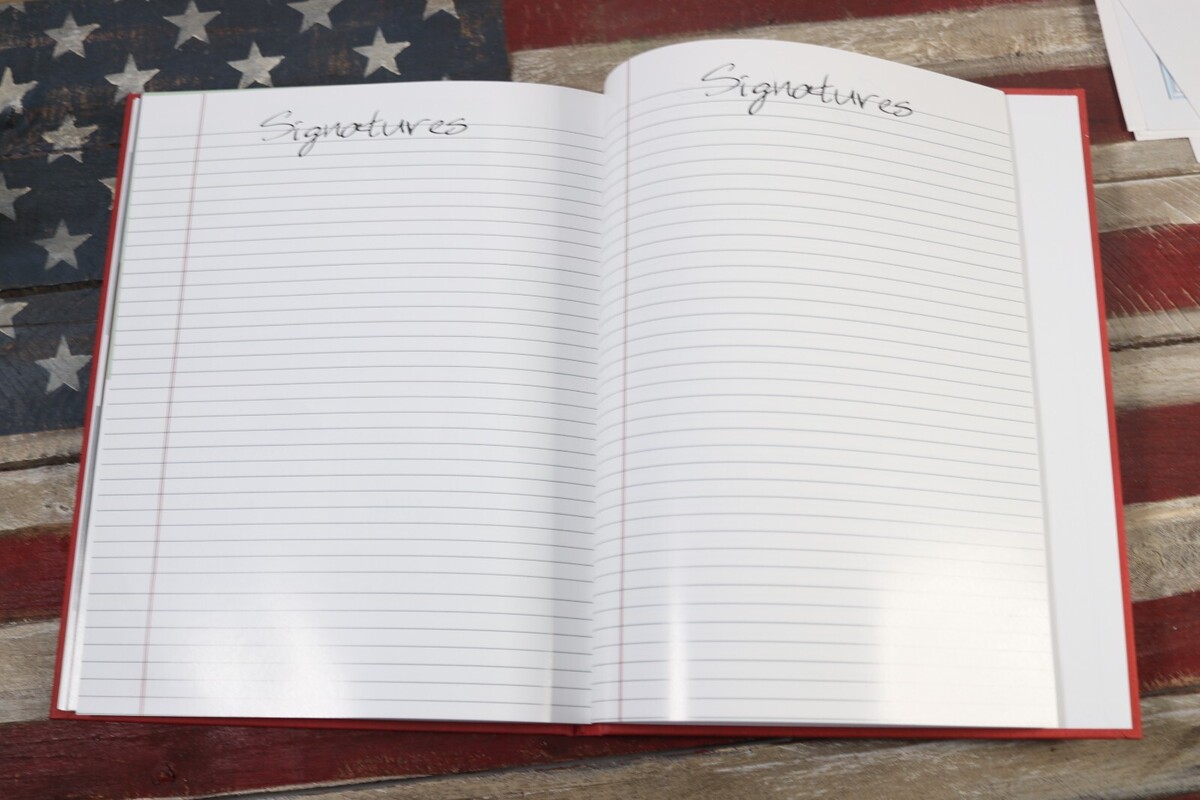 Signatures
Signatures